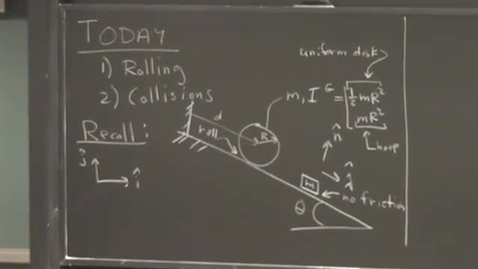 TODAY
1) Rolling
2) Collisions
Recall:
ĵ
î
d
roll
R
uniform disk
m, I^G = ½ mR²
mR²
hoop
n̂
λ̂
m
no friction
θ